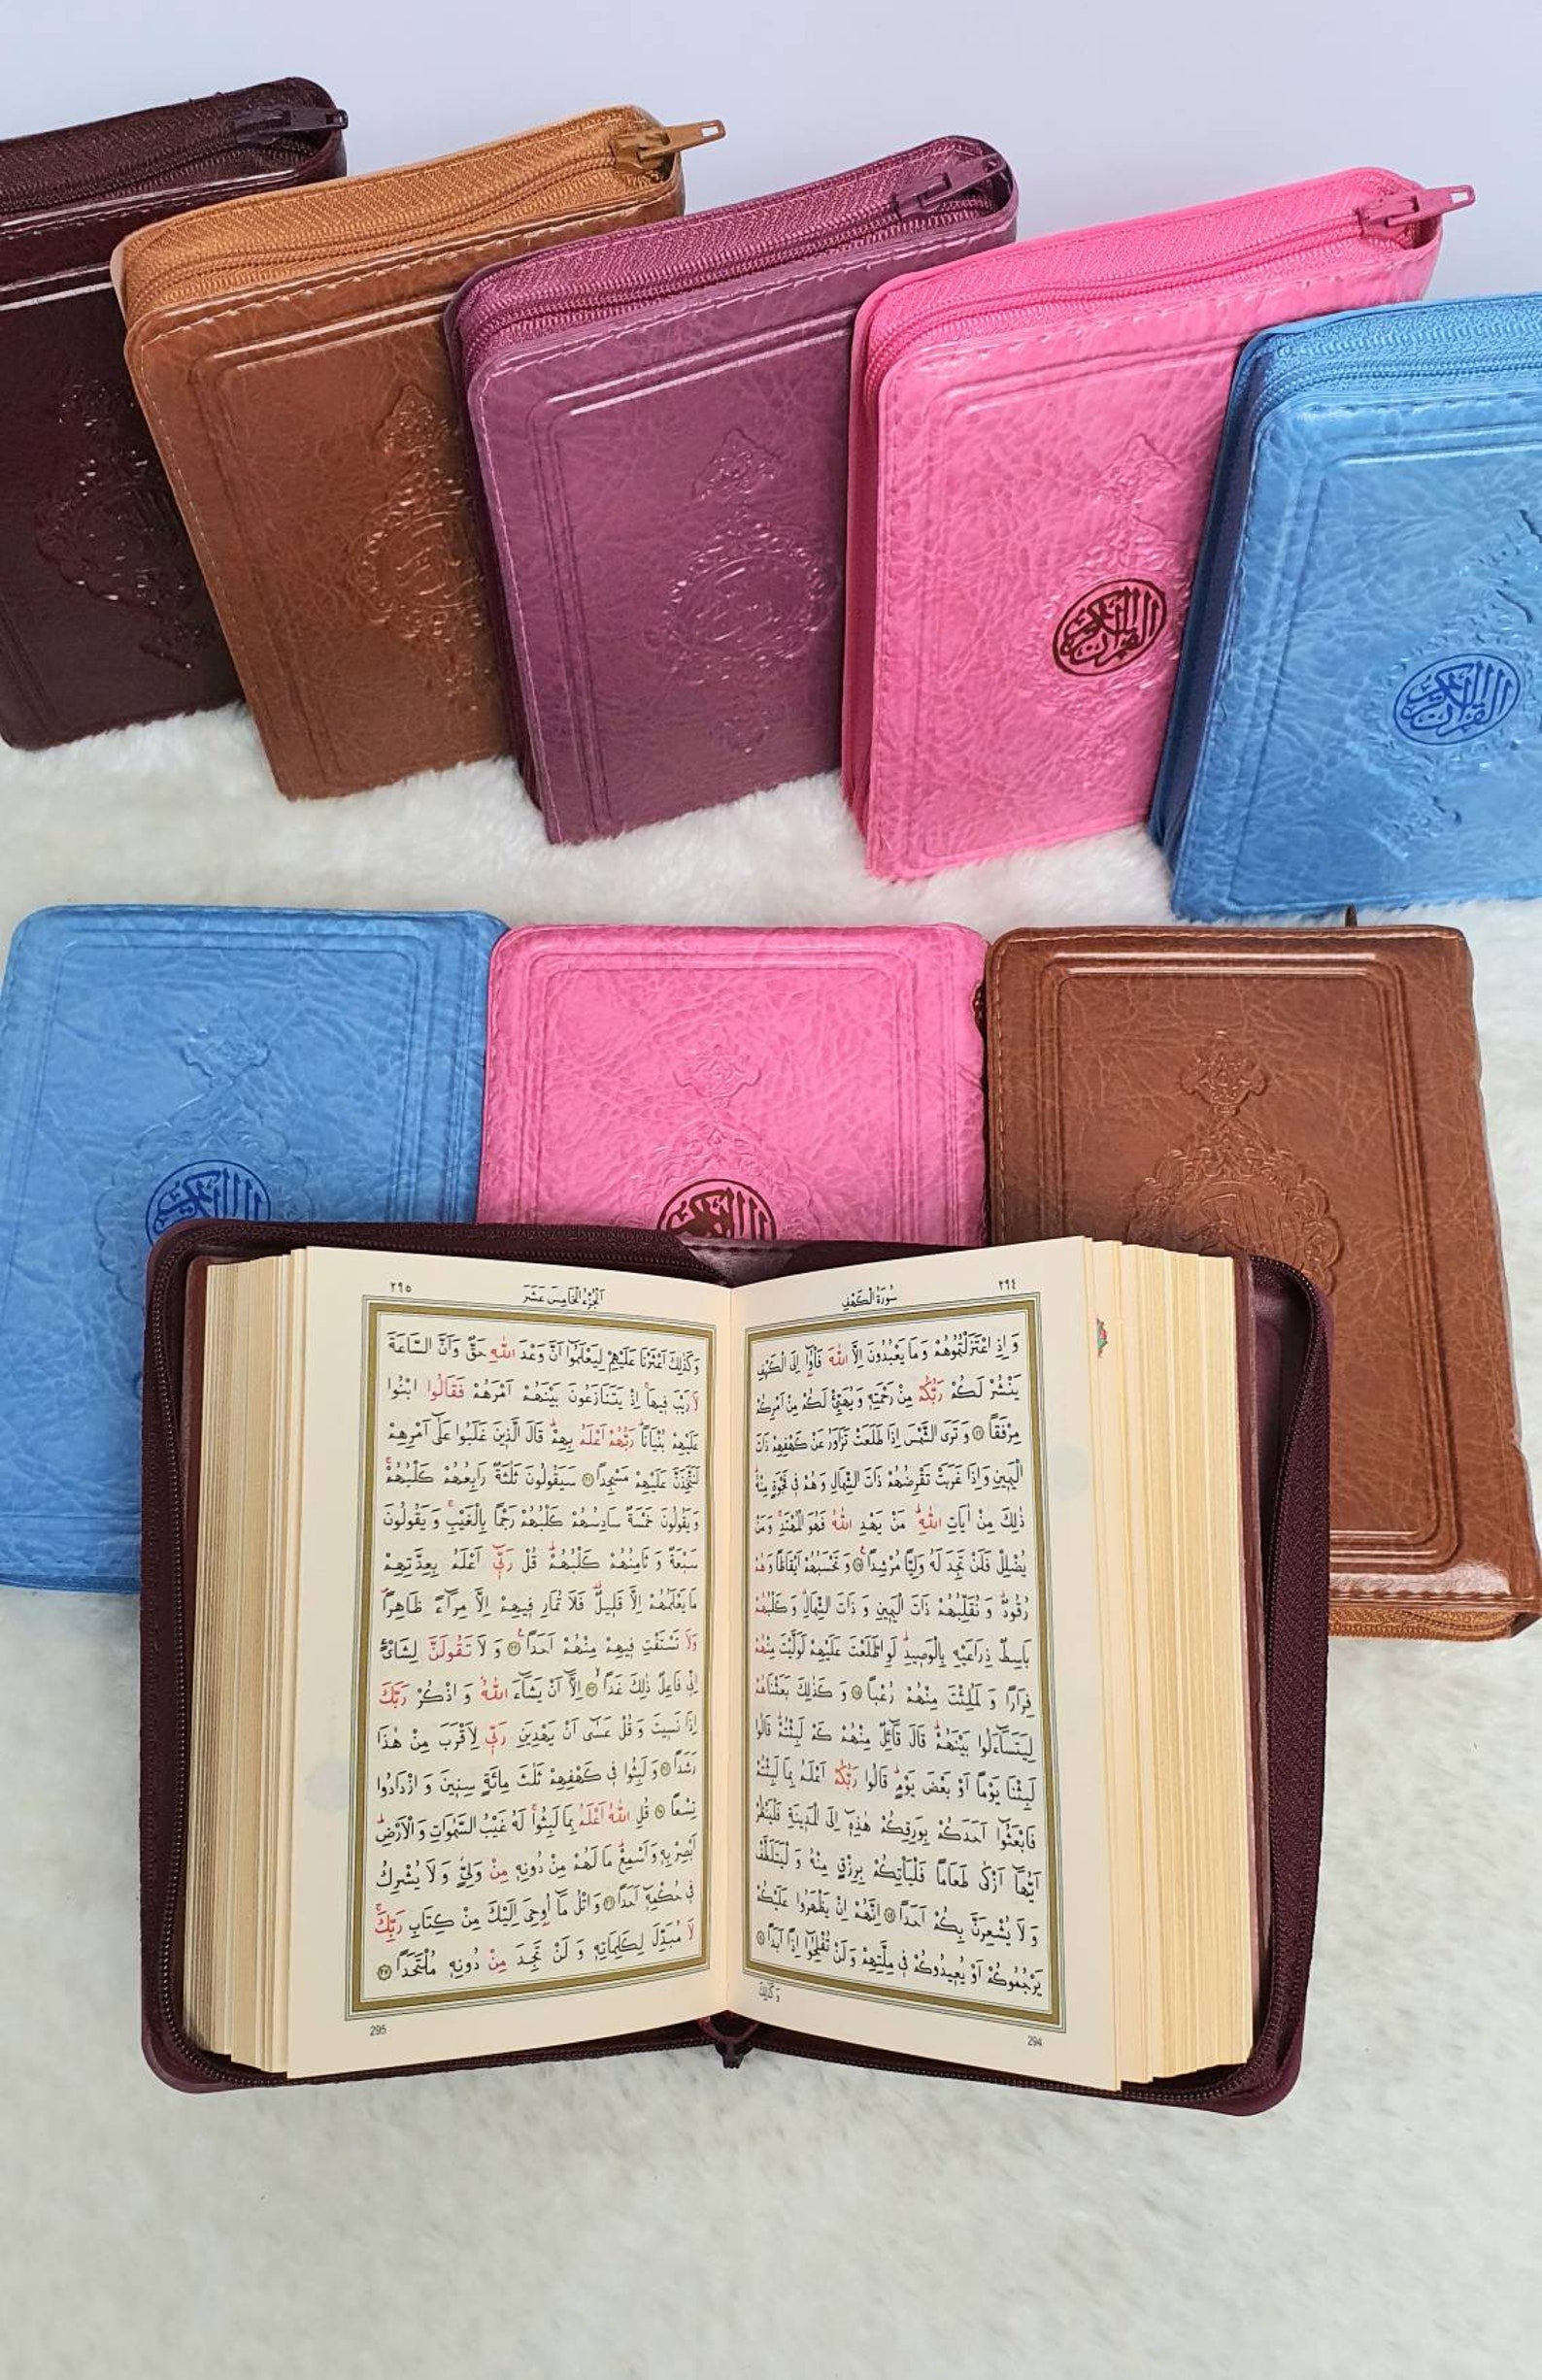 القرآن الكريم
القرآن الكريم
القرآن الكريم
٢٩٤
سُورَةُ الْكَهْفِ
وَاِذِ اعْتَزَلْتُمُوهُمْ وَمَا يَعْبُدُونَ اِلَّا اللّٰهَ فَأْوُٓا اِلَى الْكَهْفِ
يَنْشُرْ لَكُمْ رَبُّكُمْ مِنْ رَحْمَتِهٖ وَيُهَيِّئْ لَكُمْ مِنْ اَمْرِكُمْ
مِرْفَقًا ۝١٦ وَتَرَى الشَّمْسَ اِذَا طَلَعَتْ تَزَاوَرُ عَنْ كَهْفِهِمْ ذَاتَ
الْيَمٖينِ وَاِذَا غَرَبَتْ تَقْرِضُهُمْ ذَاتَ الشِّمَالِ وَهُمْ فٖي فَجْوَةٍ مِنْهُۜ
ذٰلِكَ مِنْ اٰيَاتِ اللّٰهِۜ مَنْ يَهْدِ اللّٰهُ فَهُوَ الْمُهْتَدِۚ وَمَنْ
يُضْلِلْ فَلَنْ تَجِدَ لَهُ وَلِيًّا مُرْشِدًا۟ ۝١٧ وَتَحْسَبُهُمْ اَيْقَاظًا وَهُمْ
رُقُودٌۗ وَنُقَلِّبُهُمْ ذَاتَ الْيَمٖينِ وَذَاتَ الشِّمَالِۗ وَكَلْبُهُمْ
بَاسِطٌ ذِرَاعَيْهِ بِالْوَصٖيدِۜ لَوِ اطَّلَعْتَ عَلَيْهِمْ لَوَلَّيْتَ مِنْهُمْ
فِرَارًا وَلَمُلِئْتَ مِنْهُمْ رُعْبًا ۝١٨ وَكَذٰلِكَ بَعَثْنَاهُمْ
لِيَتَسَٓاءَلُوا بَيْنَهُمْۜ قَالَ قَٓائِلٌ مِنْهُمْ كَمْ لَبِثْتُمْۜ قَالُوا
لَبِثْنَا يَوْمًا اَوْ بَعْضَ يَوْمٍۜ قَالُوا رَبُّكُمْ اَعْلَمُ بِمَا لَبِثْتُمْ
فَابْعَثُٓوا اَحَدَكُمْ بِوَرِقِكُمْ هٰذِهٖٓ اِلَى الْمَدٖينَةِ فَلْيَنْظُرْ
اَيُّهَٓا اَزْكٰى طَعَامًا فَلْيَأْتِكُمْ بِرِزْقٍ مِنْهُ وَلْيَتَلَطَّفْ
وَلَا يُشْعِرَنَّ بِكُمْ اَحَدًا ۝١٩ اِنَّهُمْ اِنْ يَظْهَرُوا عَلَيْكُمْ
يَرْجُمُوكُمْ اَوْ يُعٖيدُوكُمْ فٖي مِلَّتِهِمْ وَلَنْ تُفْلِحُٓوا اِذًا اَبَدًا ۝٢٠
وَكَذٰلِكَ
294
٢٩٥
اَلْجُزْءُ الْخَامِسَ عَشَرَ
وَكَذٰلِكَ اَعْثَرْنَا عَلَيْهِمْ لِيَعْلَمُٓوا اَنَّ وَعْدَ اللّٰهِ حَقٌّ وَاَنَّ السَّاعَةَ
لَا رَيْبَ فٖيهَاۚ اِذْ يَتَنَازَعُونَ بَيْنَهُمْ اَمْرَهُمْ فَقَالُوا ابْنُوا
عَلَيْهِمْ بُنْيَانًاۜ رَبُّهُمْ اَعْلَمُ بِهِمْۜ قَالَ الَّذٖينَ غَلَبُوا عَلٰٓى اَمْرِهِمْ
لَنَتَّخِذَنَّ عَلَيْهِمْ مَسْجِدًا ۝٢١ سَيَقُولُونَ ثَلٰثَةٌ رَابِعُهُمْ كَلْبُهُمْۚ
وَيَقُولُونَ خَمْسَةٌ سَادِسُهُمْ كَلْبُهُمْ رَجْمًا بِالْغَيْبِۚ وَيَقُولُونَ
سَبْعَةٌ وَثَامِنُهُمْ كَلْبُهُمْۜ قُلْ رَبّٖٓي اَعْلَمُ بِعِدَّتِهِمْ
مَا يَعْلَمُهُمْ اِلَّا قَلٖيلٌ۠ فَلَا تُمَارِ فٖيهِمْ اِلَّا مِرَٓاءً ظَاهِرًاۖ
وَلَا تَسْتَفْتِ فٖيهِمْ مِنْهُمْ اَحَدًا۟ ۝٢٢ وَلَا تَقُولَنَّ لِشَا۬يْءٍ
اِنّٖي فَاعِلٌ ذٰلِكَ غَدًاۙ ۝٢٣ اِلَّٓا اَنْ يَشَٓاءَ اللّٰهُۘ وَاذْكُرْ رَبَّكَ
اِذَا نَسٖيتَ وَقُلْ عَسٰٓى اَنْ يَهْدِيَنِ رَبّٖي لِاَقْرَبَ مِنْ هٰذَا
رَشَدًا ۝٢٤ وَلَبِثُوا فٖي كَهْفِهِمْ ثَلٰثَ مِائَةٍ سِنٖينَ وَازْدَادُوا
تِسْعًا ۝٢٥ قُلِ اللّٰهُ اَعْلَمُ بِمَا لَبِثُواۚ لَهُ غَيْبُ السَّمٰوَاتِ وَالْاَرْضِۜ
اَبْصِرْ بِهٖ وَاَسْمِعْۜ مَا لَهُمْ مِنْ دُونِهٖ مِنْ وَلِيٍّۘ وَلَا يُشْرِكُ
فٖي حُكْمِهٖٓ اَحَدًا ۝٢٦ وَاتْلُ مَٓا اُو۫حِيَ اِلَيْكَ مِنْ كِتَابِ رَبِّكَۚ
لَا مُبَدِّلَ لِكَلِمَاتِهٖ وَلَنْ تَجِدَ مِنْ دُونِهٖ مُلْتَحَدًا ۝٢٧
295